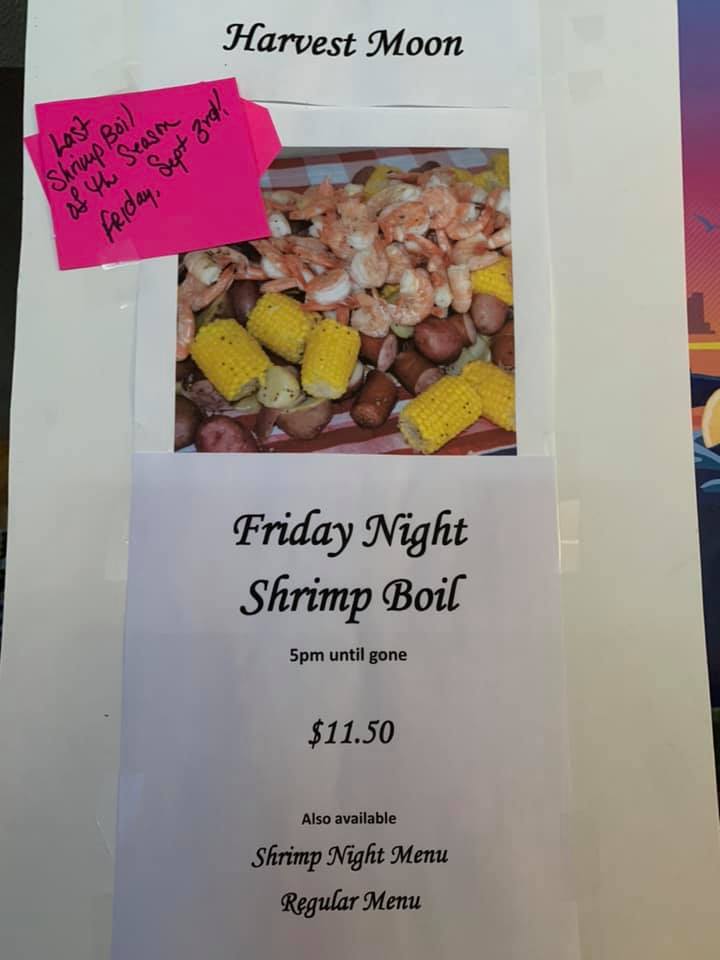 Harvest Moon
Last
Shrimp Boil
of the Season
Friday,
Sept 3rd!
Friday Night
Shrimp Boil
5pm until gone
$11.50
Also available
Shrimp Night Menu
Regular Menu